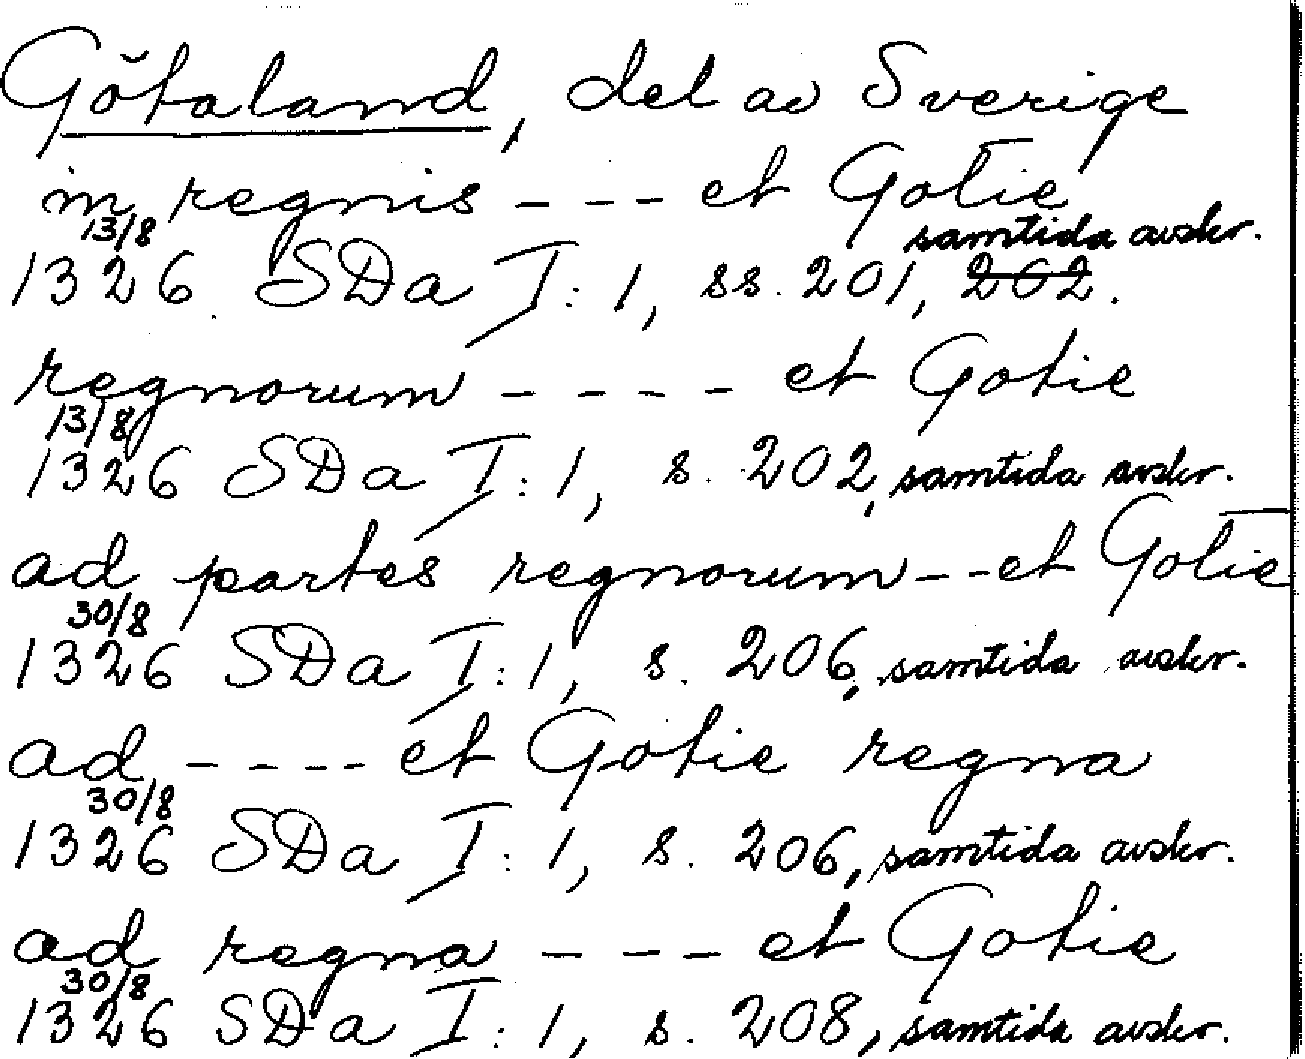 Götaland, del av Sverige
in regnis - - - et Gotie
13/8 samtida avskr.
1326 SDa I: 1, ss. 201, 202.
regnorum - - - - et Gotie
13/8
1326 SDa I: 1, s. 202, samtida avskr.
ad partes regnorum - - et Gotie
30/8
1326 SDa I: 1, s. 206, samtida avskr.
ad - - - - et Gotie regna
30/8
1326 SDa I: 1, s. 206, samtida avskr.
ad regna - - - et Gotie
30/8
1326 SDa I: 1, s. 208, samtida avskr.